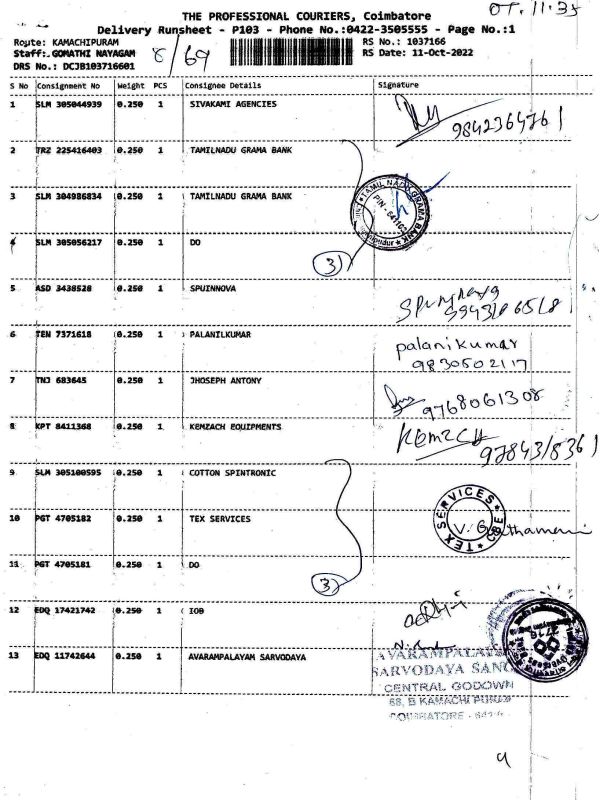 THE PROFESSIONAL COURIERS, Coimbatore
Delivery Runsheet - P103 - Phone No.:0422-3505555 - Page No.:1
Route: KAMACHIPURAM RS No.: 1037166
Staff:.GOMATHI NAYAGAM 8/69 RS Date: 11-Oct-2022
DRS No.: DCJB103716601
S No Consignment No Weight PCS Consignee Details Signature
1 SLM 305044939 0.250 1 SIVAKAMI AGENCIES
9842364761
2 TRZ 225416403 0.250 1 TAMILNADU GRAMA BANK
3 SLM 304986834 0.250 1 TAMILNADU GRAMA BANK
TAMIL NADU GRAMA BANK
4 SLM 305056217 0.250 1 DO
3)
5 ASD 3438528 0.250 1 SPUINNOVA
6 TEN 7371618 0.250 1 PALANILKUMAR
palanikumar
9830502117
7 TNJ 683645 0.250 1 JHOSEPH ANTONY
9768061308
8 KPT 8411368 0.250 1 KEMZACH EQUIPMENTS
KEMZCH
9784318361
9 SLM 305100595 0.250 1 COTTON SPINTRONIC
10 PGT 4705182 0.250 1 TEX SERVICES
TEX SERVICES CBE
11 PGT 4705181 0.250 1 DO
3)
12 EDQ 17421742 0.250 1 IOB
13 EDQ 11742644 0.250 1 AVARAMPALAYAM SARVODAYA
AVARAMPALAYAM
SARVODAYA SANG
CENTRAL GODOWN
68, B KAMACHI PURAM
COIMBATORE - 641